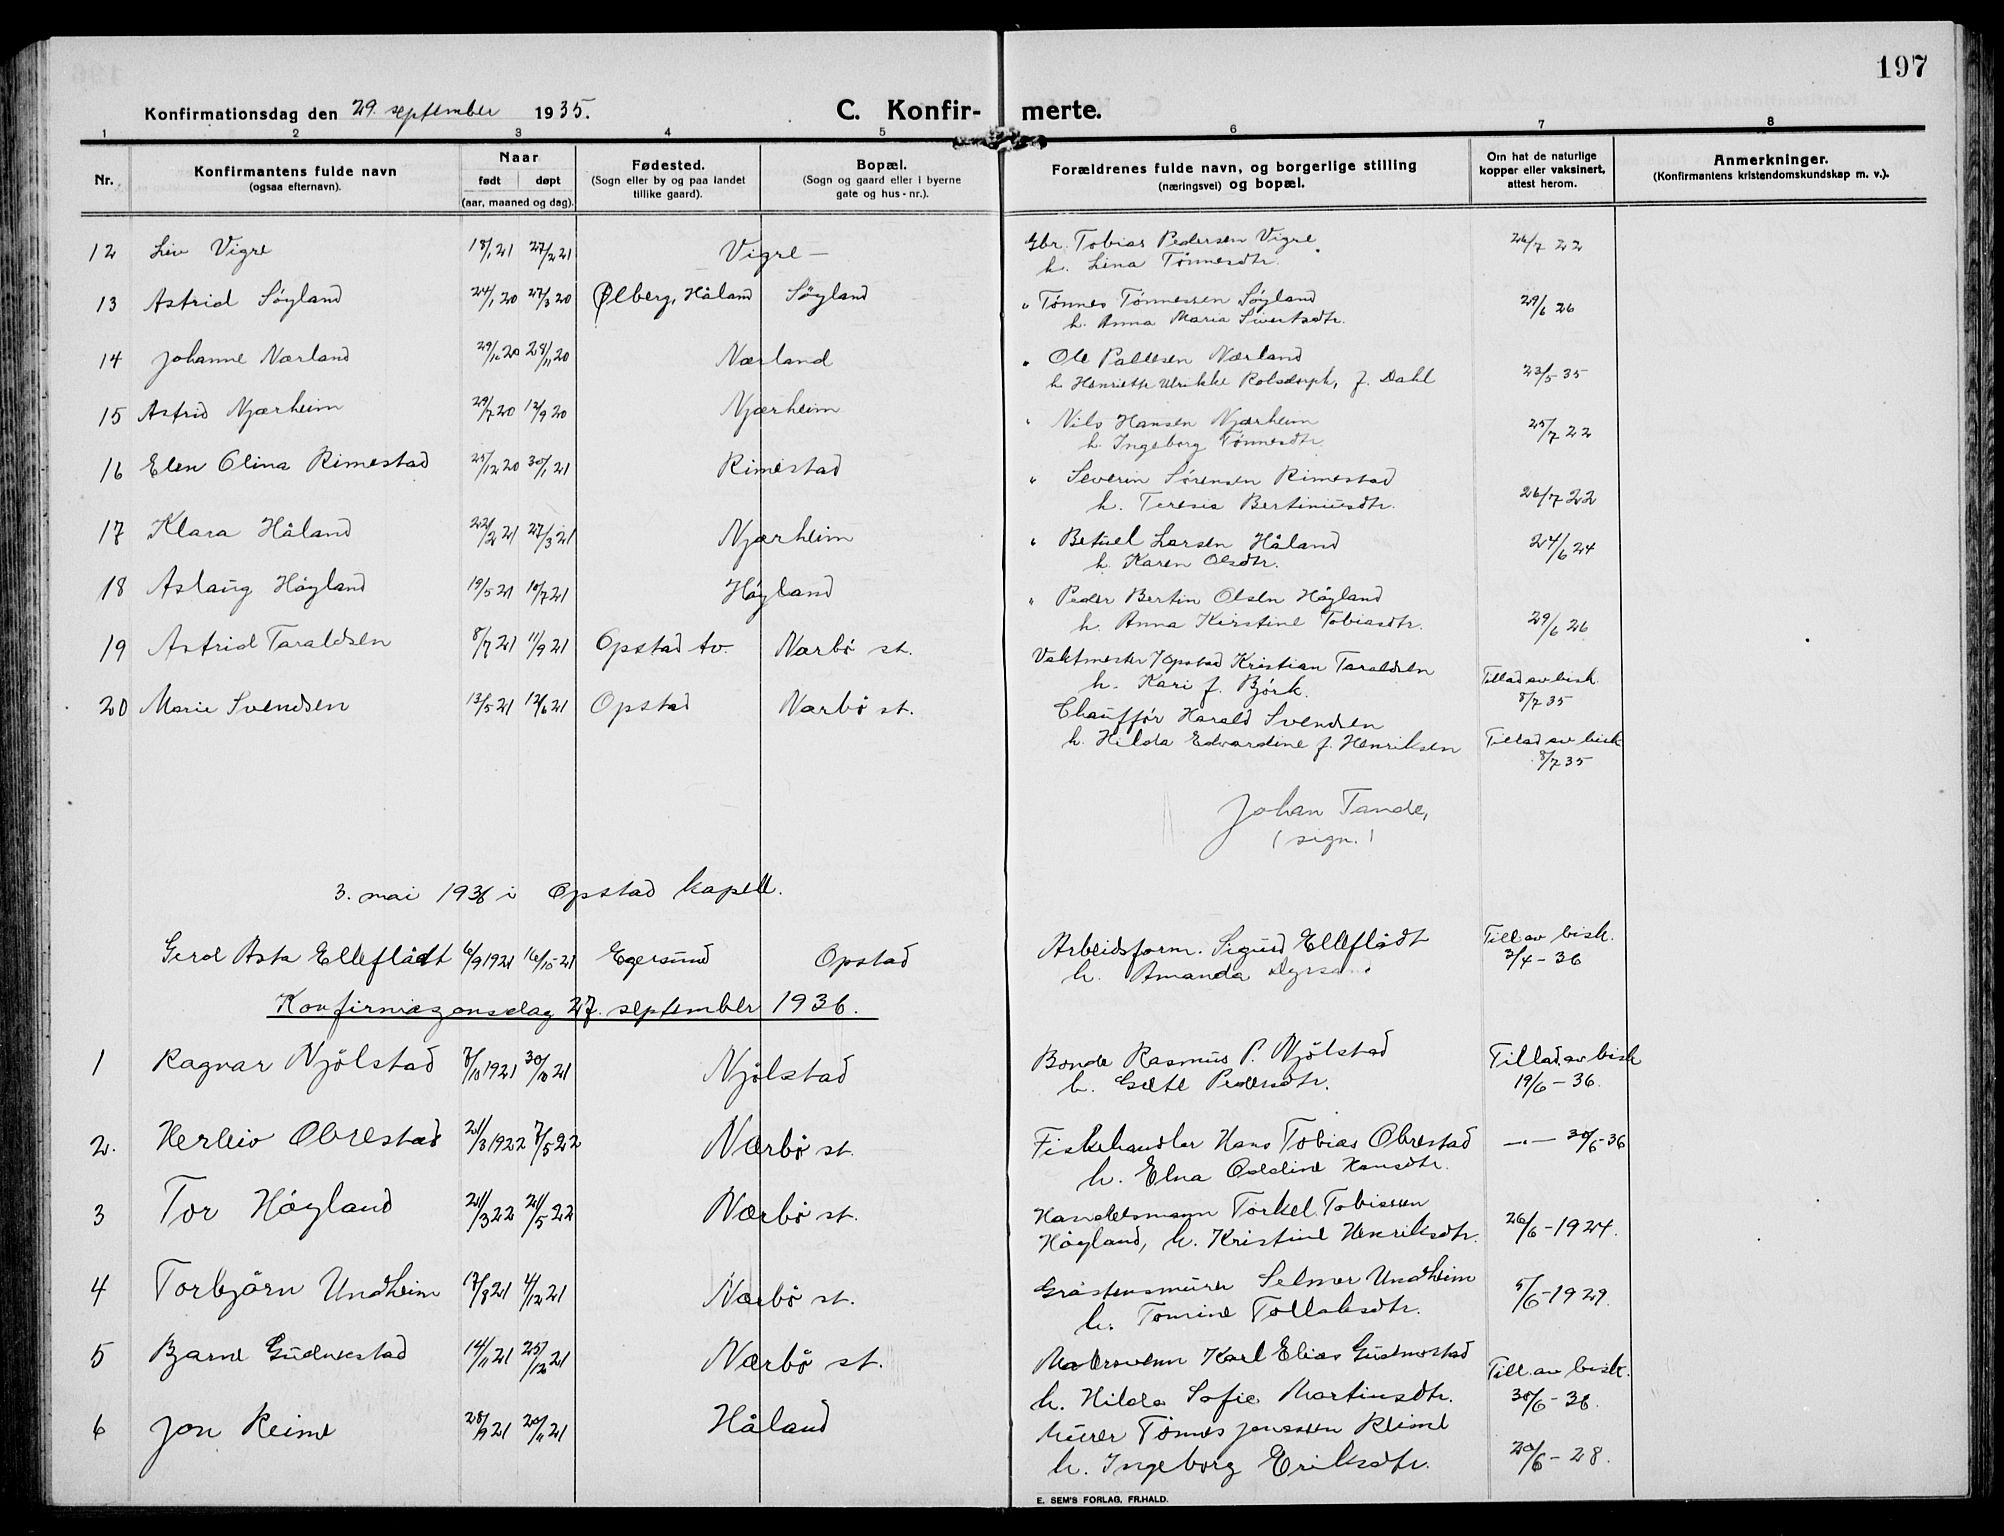 197
Konfirmationsdag den 29. september 1935. C. Konfir- merte.
1 2 3 4 5 6 7 8
Nr. Konfirmantens fulde navn (ogsaa efternavn). Naar født døpt (aar, maaned og dag). Fødested. (Sogn eller by og paa landet tillike gaard). Bopæl. (Sogn og gaard eller i byerne gate og hus-nr.). Forældrenes fulde navn, og borgerlige stilling (næringsvei) og bopæl. Om hat de naturlige kopper eller vaksinert, attest herom. Anmerkninger. (Konfirmantens kristendomskundskap m. v.).
12 Liv Vigre 18/1 21 27/2 21 Vigre — Gbr. Tobias Pedersen Vigre 26/7 22
h. Lina Tønnesdtr.
13 Astrid Søyland 24/1 20 27/3 20 Ølberg, Håland Søyland " Tønnes Tønnessen Søyland 29/6 26
h. Anna Maria Sivertsdtr.
14 Johanne Nærland 29/10 20 28/11 20 Nærland " Ole Pallesen Nærland
h. Henriette Ulrikke Rolsdorph, f. Dahl 23/5 35
15 Astrid Njærheim 29/7 20 12/9 20 Njærheim " Nils Hansen Njærheim 25/7 22
h. Ingeborg Tønnesdtr.
16 Elen Olina Rimestad 25/12 20 30/1 21 Rimestad " Severin Sørensen Rimestad
h. Teresia Bertiniusdtr. 26/7 22
17 Klara Håland 22/2 21 27/3 21 Njærheim " Betuel Larsen Håland 24/6 24
h. Karen Olsdtr.
18 Aslaug Høyland 19/5 21 10/7 21 Høyland " Peder Bertin Olsen Høyland
h. Anna Kirstine Tobiasdtr. 29/6 26
19 Astrid Taraldsen 8/7 21 11/9 21 Opstad tv. Nærbø st. Vaktmester /Opstad Kristian Taraldsen
h. Kari f. Björk. Tillad av bisk. 8/7 35
20 Marie Svendsen 13/5 21 12/6 21 Opstad Nærbø st. Chauffør Harald Svendsen
h. Hilda Edvardine f. Henriksen Tillad av bisk 8/7 35
Johan Tande,
(sign.)
3. mai 1936 i Opstad kapell.
Gerd Asta Elleflådt 6/9 1921 16/10-21 Egersund Opstad Arbeidsform. Sigurd Elleflådt Till av bisk.
h. Amanda 3/4 - 36
Konfirmasjonsdag 27. september 1936.
1 Ragnar Njölstad 7/10 1921 30/10 21 Njölstad Bonde Rasmus P. Njölstad Tillad. av bisk
h. Gete Pedersdtr. 19/6 - 36.
2. Herleiv Obrestad 21/3 1922 7/5 22 Nærbø st. Fiskehandler Hans Tobias Obrestad — " — 30/6-36
h. Elna Oddine Hansdtr.
3 Tor Høyland 21/3 22 21/5 22 Nærbø st. Handelsmann Torkel Tobiassen
Høyland, h. Kristine Henriksdtr. 26/6-1924.
4 Torbjörn Undheim 17/8 21 4/12 21 Nærbø st. Gråstensmurer Selmer Undheim 5/6-1929.
h. Tomine Tollaksdtr.
5 Bjarne Gudmestad 14/11 21 25/12 21 Nærbø st. Malersvenn Karl Elias Gudmestad Till. av bisk.
h. Hilda Sofie Martinsdtr. 30/6 - 36.
6 Jon Reime 28/9 21 20/11 21 Håland Murer Tönnes Jonassen Reime
h. Ingeborg Eriksdtr. 20/6 - 28.
E. SEM'S FORLAG, FR.HALD.